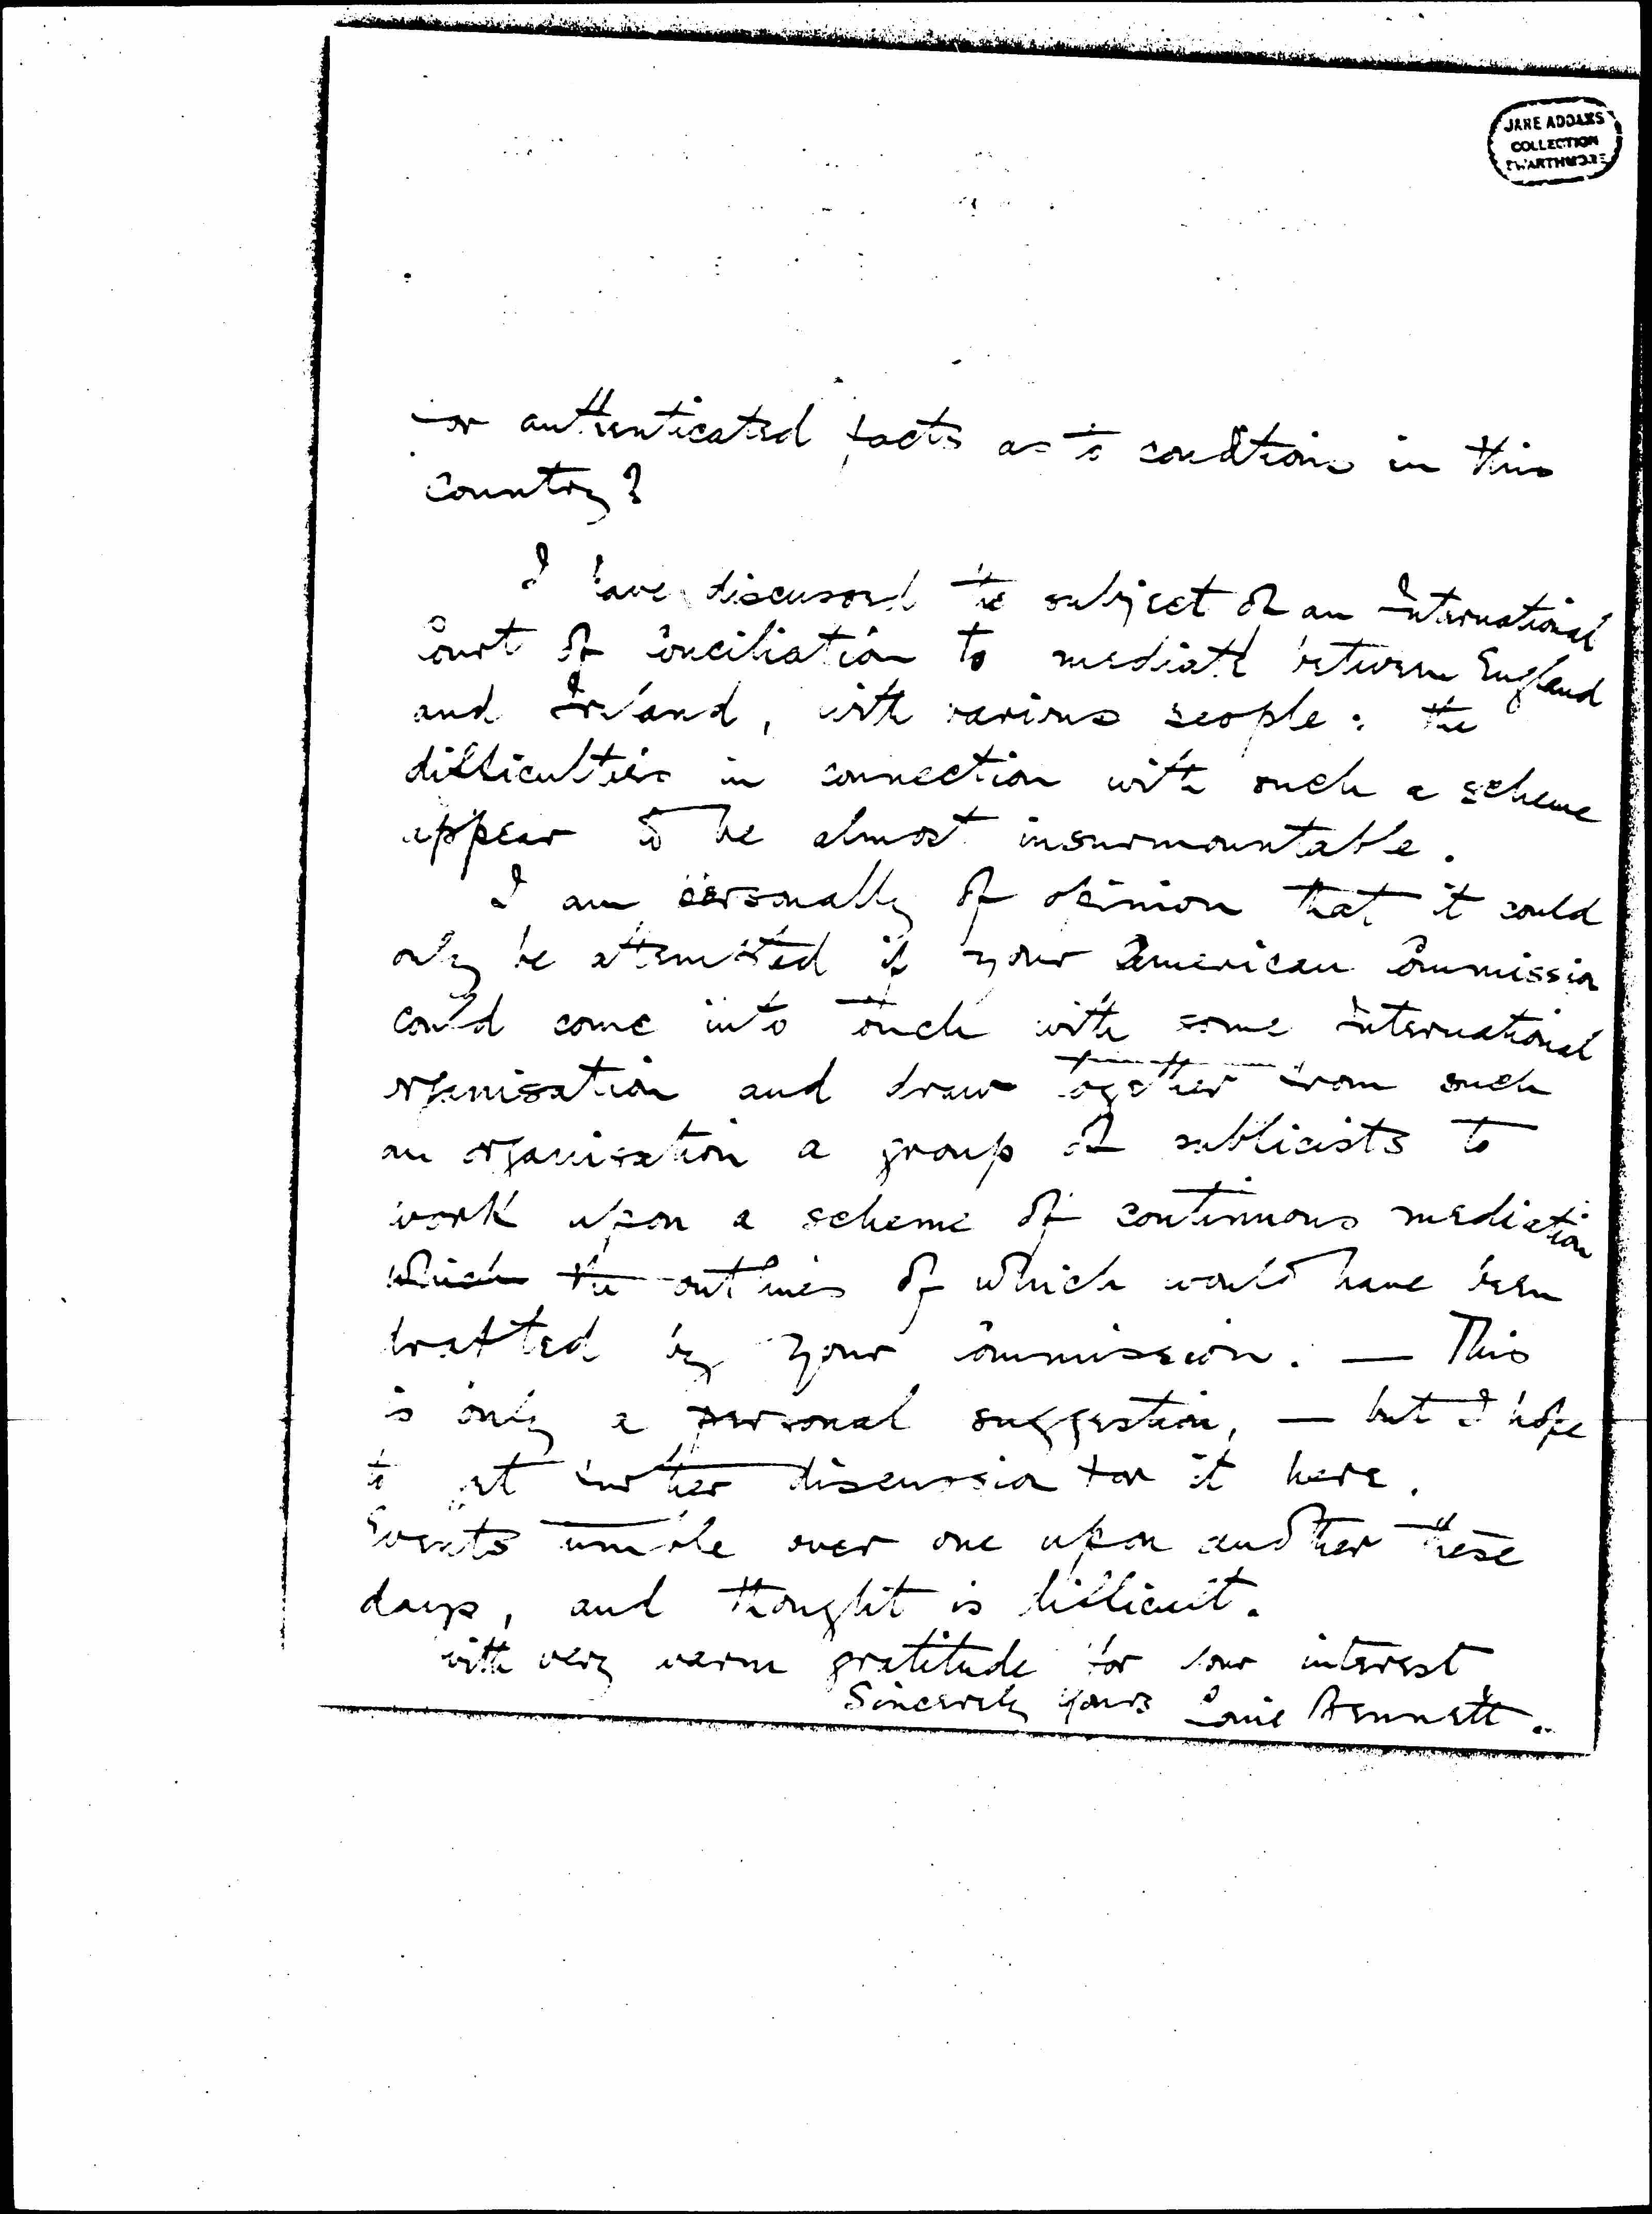 JANE ADDAMS
COLLECTION
SWARTHMORE
for authenticated facts as to conditions in this
country?
I have discussed the subject of an International
Court of Conciliation to mediate between England
and Ireland, with various people: the
difficulties in connection with such a scheme
appear to be almost insurmountable.
I am personally of opinion that it could
only be attempted if your American Commission
could come into touch with some International
organisation and draw together from such
an organisation a group of publicists to
work upon a scheme of continuous mediation
which the outlines of which would have been
drafted by your Commission. — This
is only a personal suggestion, — but I hope
to get further discussion for it here.
Events tumble over one upon another these
days, and thought is difficult.
With very warm gratitude for your interest
Sincerely yours Louie Bennett.